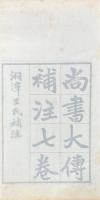 尚書大傳
補注七卷
湘潭王氏補注